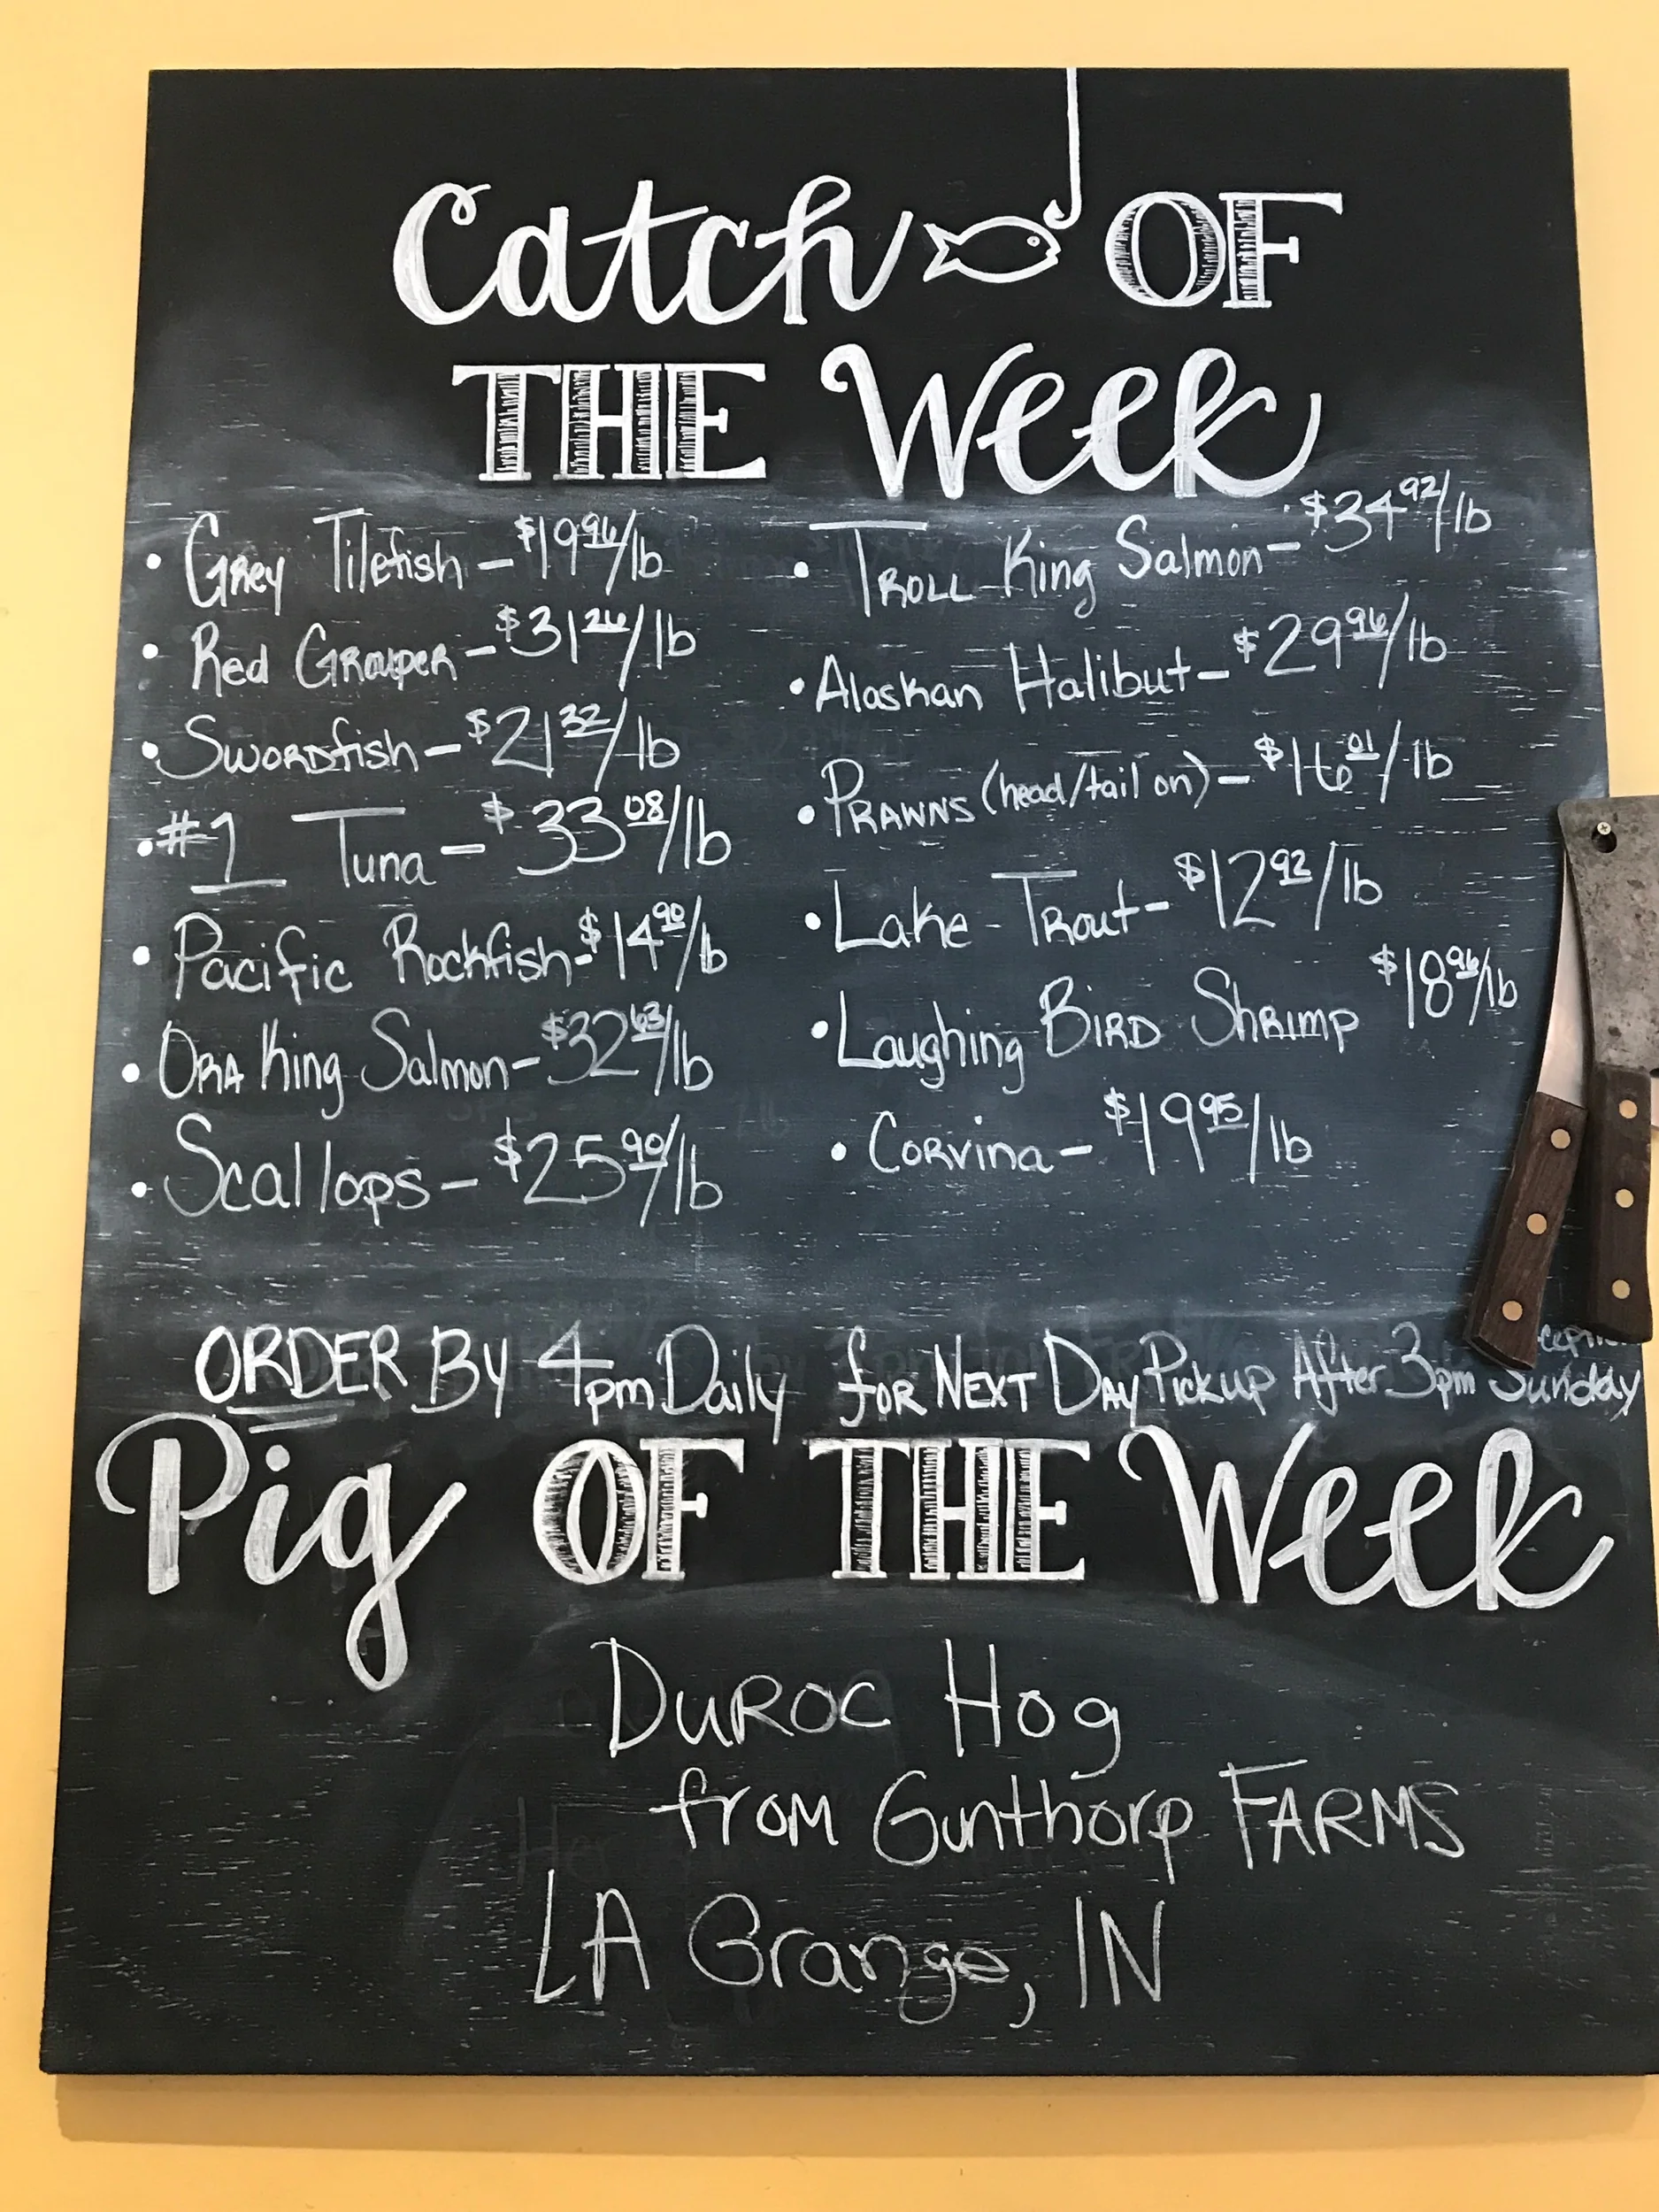 Catch OF
THE Week
• Grey Tilefish - $19.96/lb
• Red Grouper - $31.26/lb
• Swordfish - $21.32/lb
• #1 Tuna - $33.08/lb
• Pacific Rockfish - $14.90/lb
• Ora King Salmon - $32.63/lb
• Scallops - $25.90/lb
• Troll King Salmon - $34.92/lb
• Alaskan Halibut - $29.96/lb
• Prawns (head/tail on) - $16.01/lb
• Lake Trout - $12.92/lb
• Laughing Bird Shrimp $18.96/lb
• Corvina - $19.95/lb
ORDER By 4pm Daily for Next Day Pickup After 3pm Sunday
Pig OF THE Week
Duroc Hog
from Gunthorp FARMS
LA Grange, IN